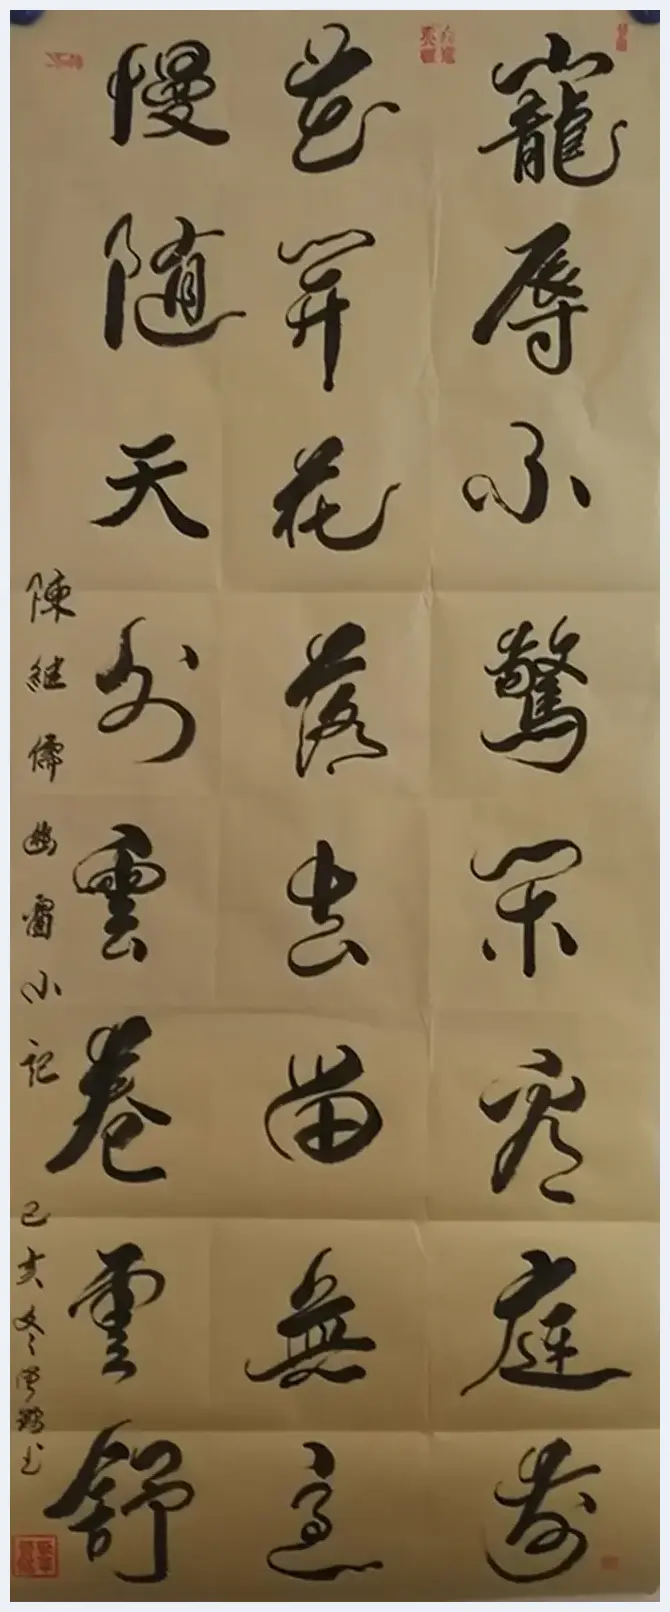 寵辱不驚閑看庭前
花開花落去留無意
慢随天外雲卷雲舒
陳継儒幽窗小記
己亥冬